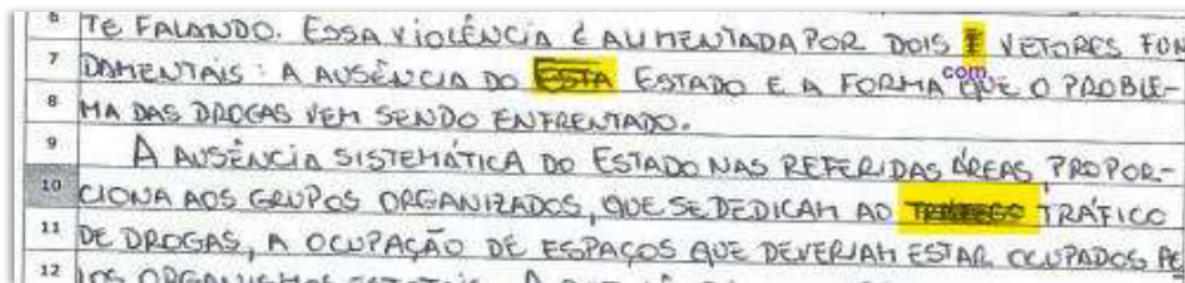 6 TE FALANDO. ESSA VIOLÊNCIA É AUMENTADA POR DOIS VETORES FUN
7 DAMENTAIS: A AUSÊNCIA DO ESTA ESTADO E A FORMA com QUE O PROBLE-
8 MA DAS DROGAS VEM SENDO ENFRENTADO.
9 A AUSÊNCIA SISTEMÁTICA DO ESTADO NAS REFERIDAS ÁREAS, PROPOR-
10 CIONA AOS GRUPOS ORGANIZADOS, QUE SE DEDICAM AO TRÁFICO
11 DE DROGAS, A OCUPAÇÃO DE ESPAÇOS QUE DEVERIAM ESTAR OCUPADOS PE
12 LOS ORGANISMOS ESTATAIS. A